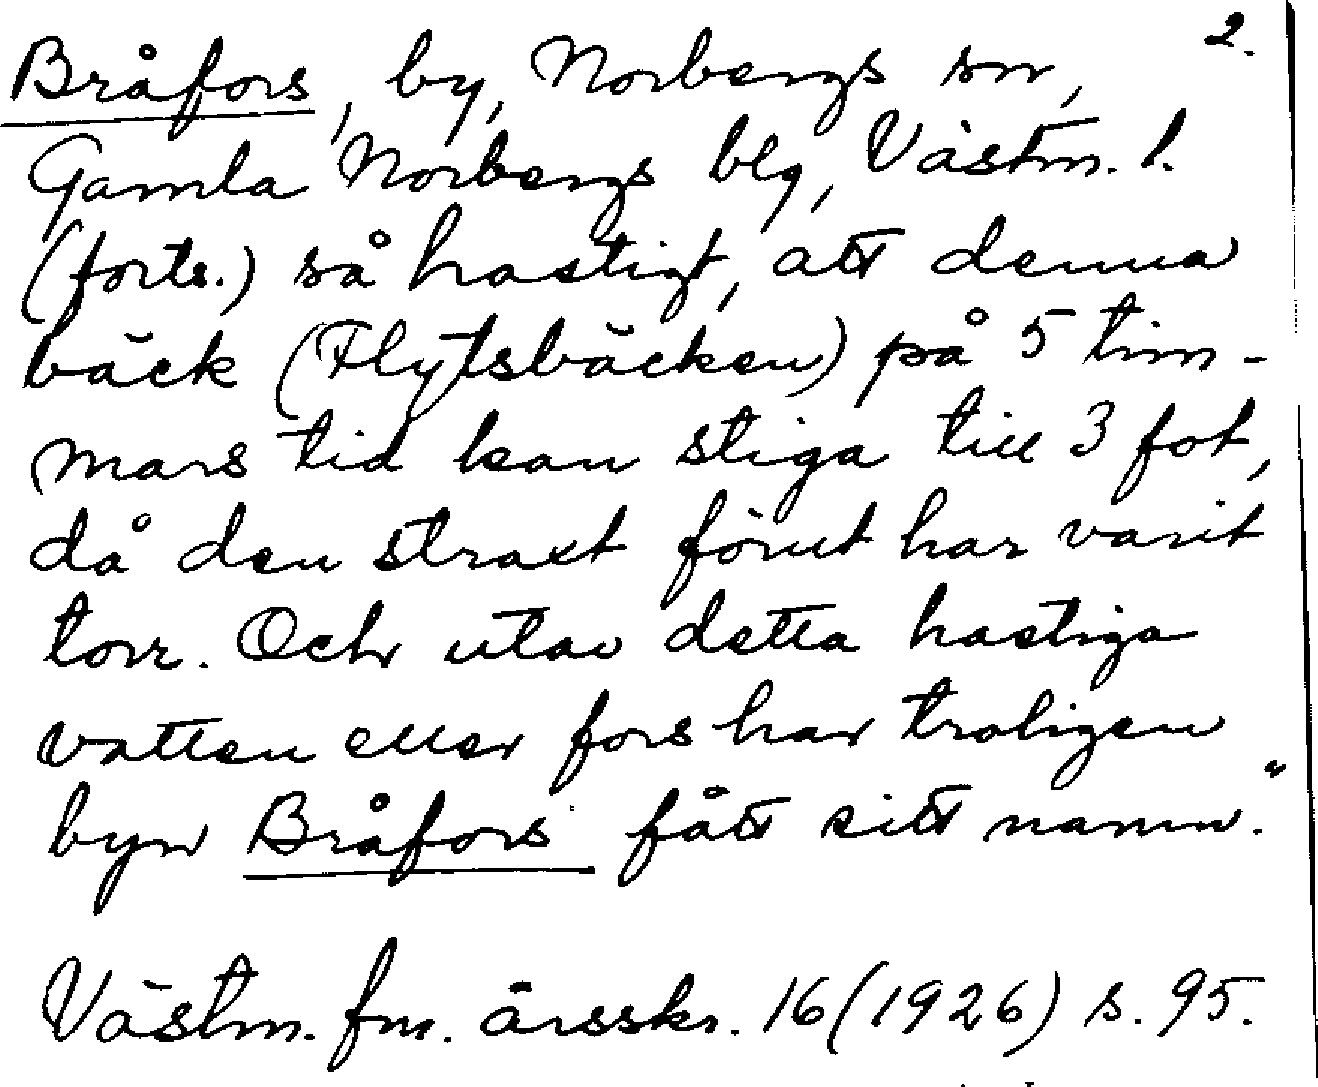 2.
Bråfors, by, Norbergs sn,
Gamla Norbergs blg, Västm. l.
(forts.) så hastigt, att denna
bäck (Flytsbäcken) på 5 tim-
mars tid kan stiga till 3 fot,
då den straxt förut har varit
torr. Och utav detta hastiga
vatten eller fors har troligen
byn Bråfors fått sitt namn."
Västm. fm. årsskr. 16 (1926) s. 95.